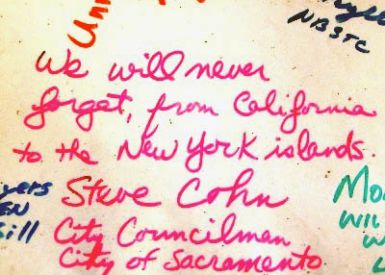 NBSTC
We will never
forget, from California
to the New York islands.
Steve Cohn
City Councilman
City of Sacramento